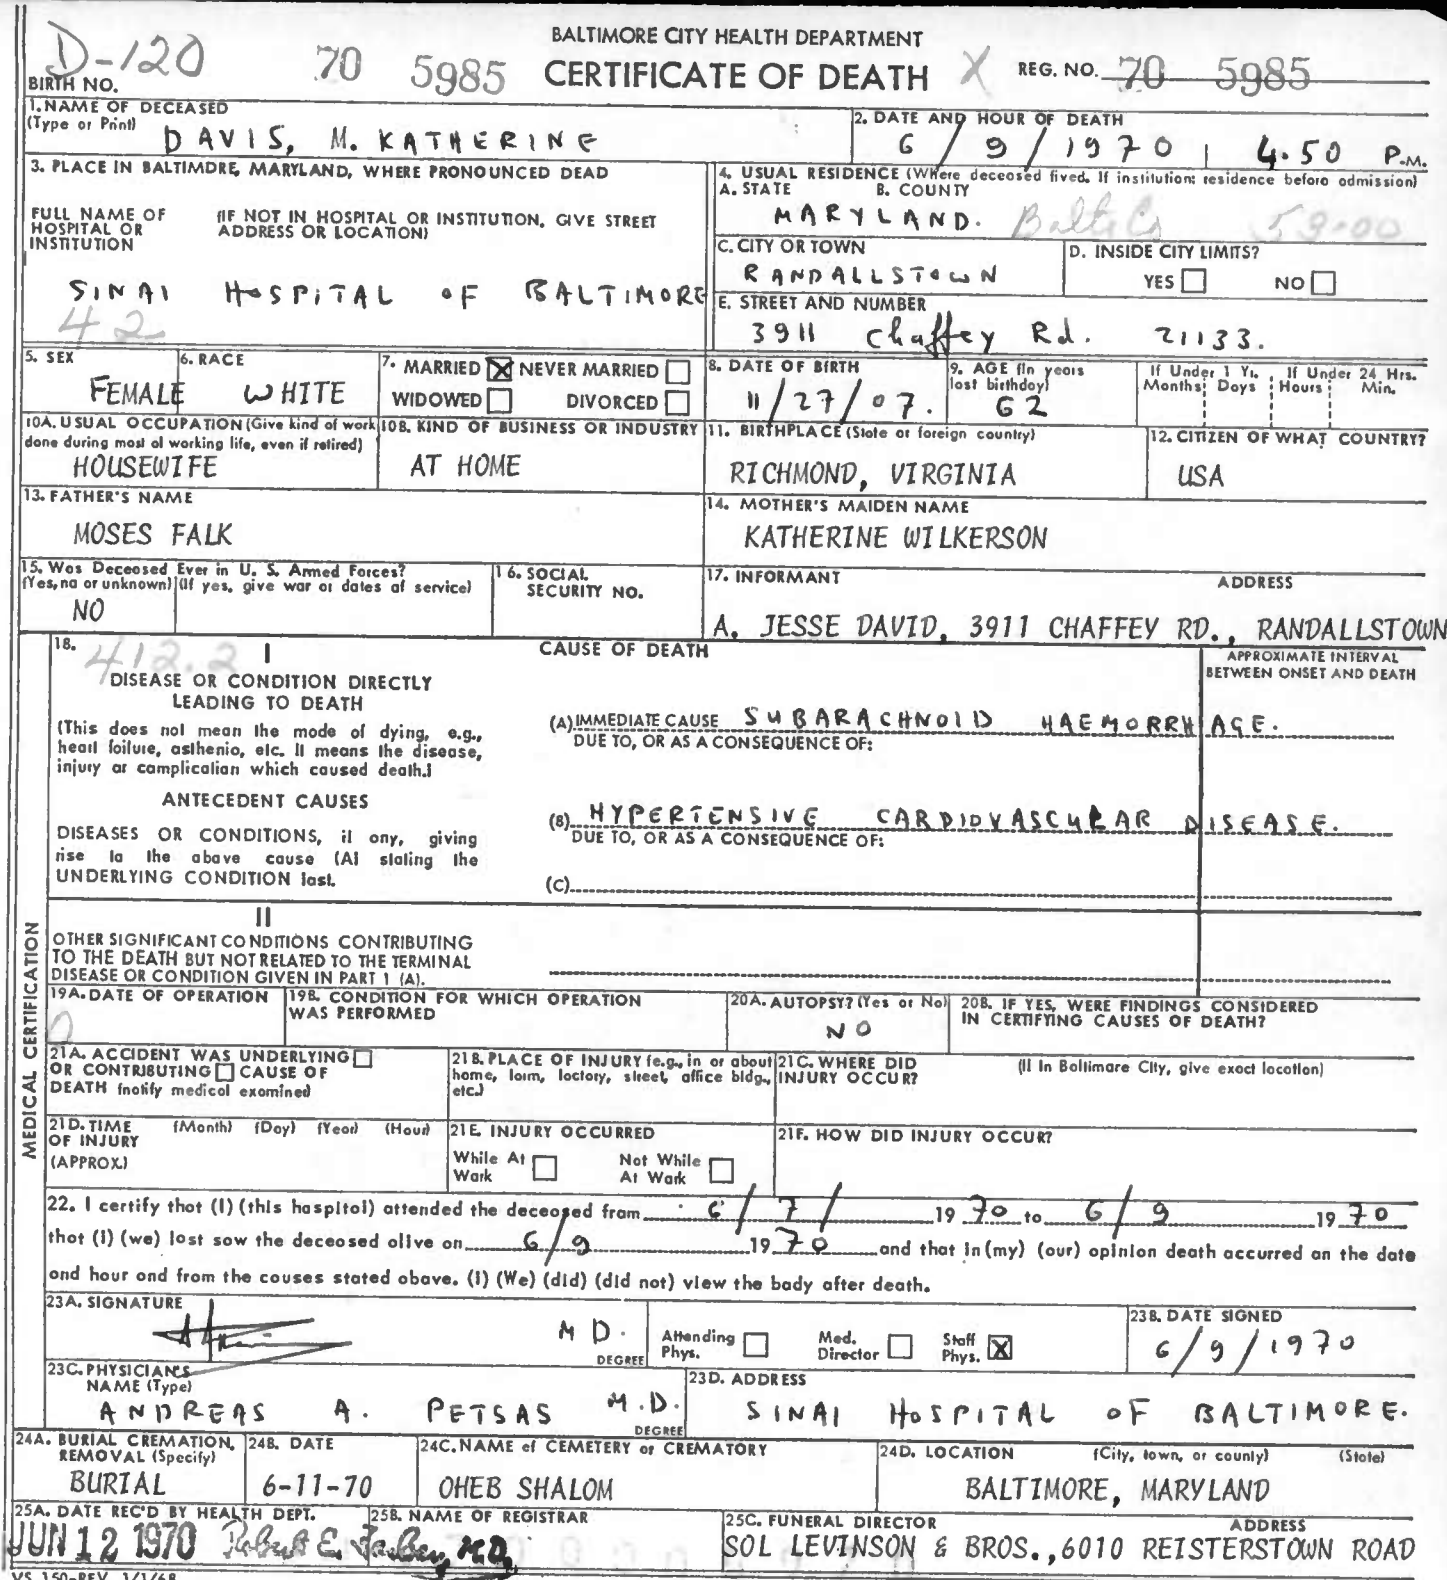 D-120 70 5985 BALTIMORE CITY HEALTH DEPARTMENT
BIRTH NO. CERTIFICATE OF DEATH X REG. NO. 70 5985
1. NAME OF DECEASED
(Type or Print) DAVIS, M. KATHERINE
2. DATE AND HOUR OF DEATH
6/9/1970 4.50 P.M.
3. PLACE IN BALTIMORE, MARYLAND, WHERE PRONOUNCED DEAD
FULL NAME OF HOSPITAL OR INSTITUTION
(IF NOT IN HOSPITAL OR INSTITUTION, GIVE STREET ADDRESS OR LOCATION)
SINAI HOSPITAL OF BALTIMORE
42
4. USUAL RESIDENCE (Where deceased lived. If institution: residence before admission)
A. STATE B. COUNTY
MARYLAND. Balto Co 53-00
C. CITY OR TOWN
RANDALLSTOWN
D. INSIDE CITY LIMITS?
YES NO
E. STREET AND NUMBER
3911 Chaffey Rd. 21133.
5. SEX
FEMALE
6. RACE
WHITE
7. MARRIED X NEVER MARRIED
WIDOWED DIVORCED
8. DATE OF BIRTH
11/27/07.
9. AGE (In years last birthday)
62
If Under 1 Yr. If Under 24 Hrs.
Months Days Hours Min.
10A. USUAL OCCUPATION (Give kind of work done during most of working life, even if retired)
HOUSEWIFE
10B. KIND OF BUSINESS OR INDUSTRY
AT HOME
11. BIRTHPLACE (State or foreign country)
RICHMOND, VIRGINIA
12. CITIZEN OF WHAT COUNTRY?
USA
13. FATHER'S NAME
MOSES FALK
14. MOTHER'S MAIDEN NAME
KATHERINE WILKERSON
15. Was Deceased Ever in U. S. Armed Forces?
(Yes, no or unknown) (If yes, give war or dates of service)
NO
16. SOCIAL SECURITY NO.
17. INFORMANT ADDRESS
A. JESSE DAVID, 3911 CHAFFEY RD., RANDALLSTOWN
MEDICAL CERTIFICATION
18. 412.2 I CAUSE OF DEATH
APPROXIMATE INTERVAL
BETWEEN ONSET AND DEATH
DISEASE OR CONDITION DIRECTLY
LEADING TO DEATH
(This does not mean the mode of dying, e.g.,
heart failure, asthenia, etc. It means the disease,
injury or complication which caused death.)
(A) IMMEDIATE CAUSE SUBARACHNOID HAEMORRHAGE.
DUE TO, OR AS A CONSEQUENCE OF:
ANTECEDENT CAUSES
DISEASES OR CONDITIONS, if any, giving
rise to the above cause (A) stating the
UNDERLYING CONDITION last.
(B) HYPERTENSIVE CARDIOVASCULAR DISEASE.
DUE TO, OR AS A CONSEQUENCE OF:
(C)
II
OTHER SIGNIFICANT CONDITIONS CONTRIBUTING
TO THE DEATH BUT NOT RELATED TO THE TERMINAL
DISEASE OR CONDITION GIVEN IN PART 1 (A).
19A. DATE OF OPERATION
0
19B. CONDITION FOR WHICH OPERATION
WAS PERFORMED
20A. AUTOPSY? (Yes or No)
NO
20B. IF YES, WERE FINDINGS CONSIDERED
IN CERTIFYING CAUSES OF DEATH?
21A. ACCIDENT WAS UNDERLYING
OR CONTRIBUTING CAUSE OF
DEATH (notify medical examiner)
21B. PLACE OF INJURY (e.g., in or about
home, farm, factory, street, office bldg.,
etc.)
21C. WHERE DID
INJURY OCCUR?
(If In Baltimore City, give exact location)
21D. TIME (Month) (Day) (Year) (Hour)
OF INJURY
(APPROX.)
21E. INJURY OCCURRED
While At Work Not While At Work
21F. HOW DID INJURY OCCUR?
22. I certify that (I) (this hospital) attended the deceased from 6/7/ 19 70 to 6/9 19 70
that (I) (we) last saw the deceased alive on 6/9 19 70 and that in (my) (our) opinion death occurred on the date
and hour and from the causes stated above. (I) (We) (did) (did not) view the body after death.
23A. SIGNATURE
M D.
DEGREE
Attending Phys. Med. Director Staff Phys. X
23B. DATE SIGNED
6/9/1970
23C. PHYSICIAN'S NAME (Type)
ANDREAS A. PETSAS M.D.
DEGREE
23D. ADDRESS
SINAI HOSPITAL OF BALTIMORE.
24A. BURIAL CREMATION, REMOVAL (Specify)
BURIAL
24B. DATE
6-11-70
24C. NAME of CEMETERY or CREMATORY
OHEB SHALOM
24D. LOCATION (City, town, or county) (State)
BALTIMORE, MARYLAND
25A. DATE REC'D BY HEALTH DEPT.
JUN 12 1970
25B. NAME OF REGISTRAR
Robert E. Farber, M.D.
25C. FUNERAL DIRECTOR ADDRESS
SOL LEVINSON & BROS., 6010 REISTERSTOWN ROAD
VS 150-REV. 1/1/68